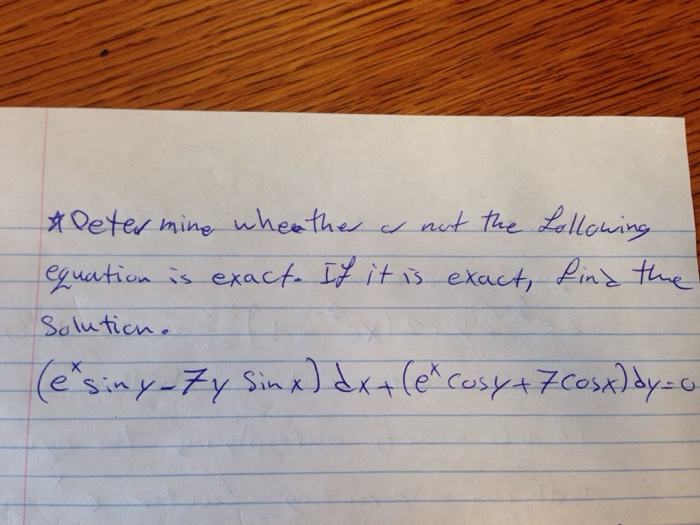 * Determine wheether or not the following
equation is exact. If it is exact, find the
Solution.
(eˣ sin y - 7y Sin x) dx + (eˣ cos y + 7 cos x) dy = 0